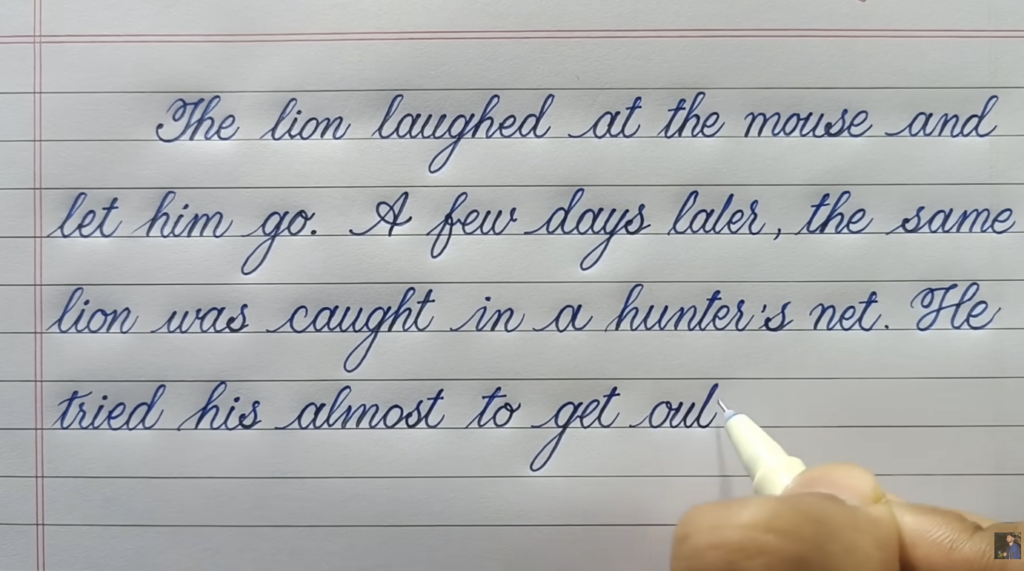 The lion laughed at the mouse and
let him go. A few days later, the same
lion was caught in a hunter's net. He
tried his almost to get out